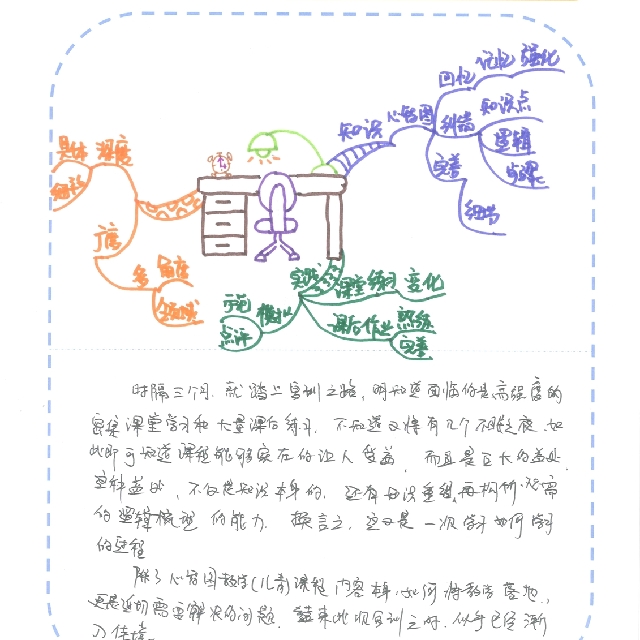 知识 心智图
回忆
记忆 强化
纠错
知识点
逻辑
步骤
完善
细节
具体 深度
细致
广度
多 角度
领域
实践
课堂练习 变化
课后作业 熟练
完善
模拟
点评
时隔三个月,就踏上复训之路,明知道面临的是高强度的
密集课堂学习和大量课后练习,不知道又将有几个不眠之夜,如
此即可知道课程能够实在的让人受益,而且是巨大的益处
这种益处,不仅是知识本身的,还有再次重组再构所需
的逻辑梳理的能力。换言之,这又是一次学习如何学习
的过程
除了心智图教学(儿青)课程内容本身,如何将教学落地,
更是迫切需要解决的问题,结束此次复训之时,似乎已经渐
入佳境。